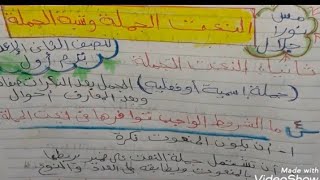 النعت الجملة وشبة الجملة
للصف الثانى الاعدادى
ترم أول
ثانية: النعت الجملة
(جملة اسمية أو فعلية) الجمل بعد النكرات صفات
وبعد المعارف أحوال
س ما الشروط الواجب توافرها فى النعت الجملة
١- أن يكون المنعوت نكرة
أن تشتمل جملة النعت على ضمير يربطها
بالمنعوت ويطابقه فى العدد والنوع
Made with
VideoShow